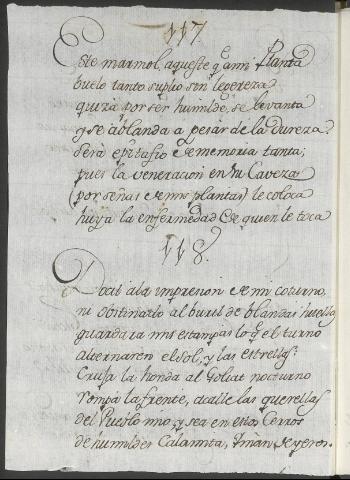 117
Este marmol, aqueste q̃ a mi Planta
buelo tanto suplio sin legereza
quiza por ser humilde, se levanta
q̃ se ablanda a pesar de la dureza.
Sera epitafio de memoria tanta;
pues la veneracion en su Caveza
(por señas de mis plantas) le coloca
huya la enfermedad de quien le toca
118.
Docil a la impresion de mi coturno,
ni obstinado al buril de blandas huellas
guardara mis estampas lo q̃ el turno
alternaren el sol, y las estrellas:
Cruja la honda al Goliat nocturno
rompa la frente, acalle las querellas
del Pueblo mio, y sea en estos Cerros
de humildes Calamita, Yman de yerros.